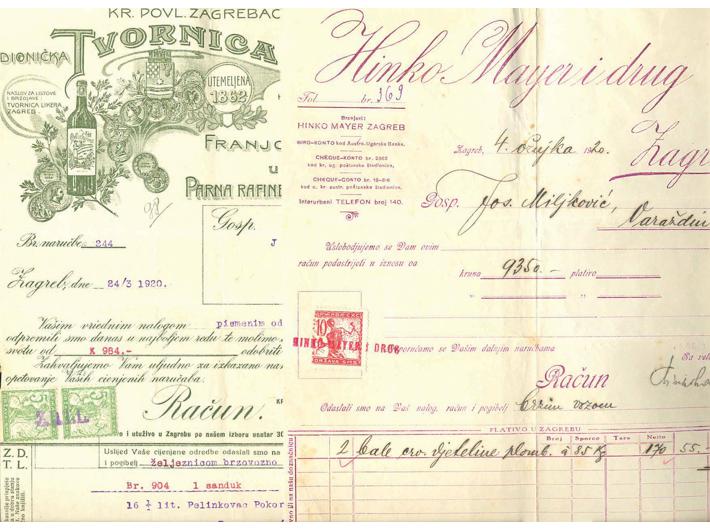 KR. POVL. ZAGREBAČ
DIONIČKA
TVORNICA
NASLOV ZA LISTOVE
I BRZOJAVE
TVORNICA LIKERA
ZAGREB.
UTEMELJENA
1862
FRANJO
U
PARNA RAFINE
Gosp.
J
Br. naručbe 244
Zagreb, dne 24/3 1920.
Vašim vriednim nalogom pismenim od
odpremili smo danas u najboljem redu te molimo
svotu od K 984.- odobriti
Zahvaljujemo Vam uljudno za izkazano nas
opetovanje Vaših cijenjenih naručaba.
Račun.
e i utuživo u Zagrebu po našem izboru unutar 30
Z. D.
T. L.
Uslijed Vaše cijenjene odredbe odaslali smo na
i pogibelj željeznicom brzovozno
Br. 904 1 sanduk
16 ½ lit. Pelinkovac Pokor
Hinko Mayer i drug
Fol. br. 369
Brzojavi:
HINKO MAYER ZAGREB
GIRO-KONTO kod Austro-Ugarske Banke.
CHEQUE-KONTO br.
kod kr. ug. poštanske štedionice,
CHEQUE-KONTO br.
kod c. kr. austr. poštanske štedionice,
Interurbani TELEFON broj 140.
Zagreb, 4. ožujka 1920.
Zagr
Gosp. Jos. Miljković,
Varaždin
Uslobodjujemo se Vam ovim
račun podastrijeti u iznosu od
kruna 9350.- plativo
" "
10
DRŽAVA SHS
HINKO MAYER I DRUG
preporučamo se Vašim daljnjim naručbama
Račun
Odaslali smo na Vaš nalog, račun i pogibelj brzim vozom
PLATIVO U ZAGREBU
Broj Sporco Tara Netto
2 bale crv. djeteline plomb. à 85 Kg 170 55.-